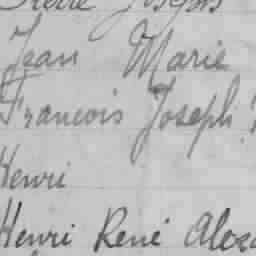 Pierre Joseph
Jean Marie
Francois Joseph
Henri
Henri René